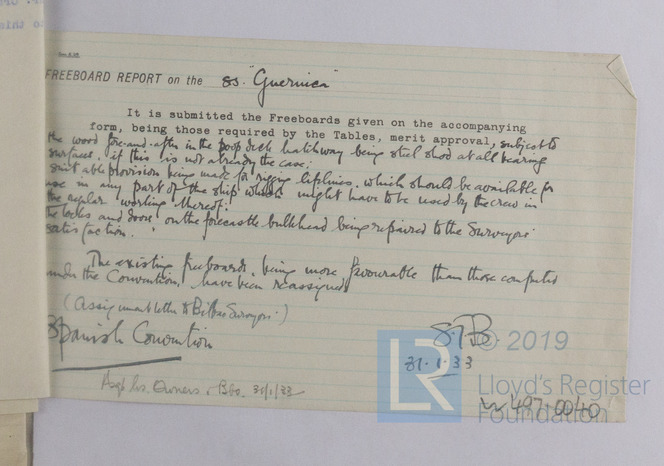 FREEBOARD REPORT on the ss. "Guernica"
It is submitted the Freeboards given on the accompanying
form, being those required by the Tables, merit approval, subject to
the wood fore-and-after in the poop deck hatchway being steel shod at all bearing
surfaces, if this is not already the case;
suitable provision being made for rigging lifelines, which should be available for
use in any part of the ship which might have to be used by the crew in
the regular working thereof;
the locks and door on the forecastle bulkhead being repaired to the Surveyors'
satisfaction.
The existing freeboards, being more favourable than those computed
under the Convention, have been reassigned
(Assignment letter to Bilbao Surveyors.)
Spanish Convention
31.1.33
Owners & Bbo. 31/1/33
© 2019
LR
Lloyd's Register
Foundation
W497-0040